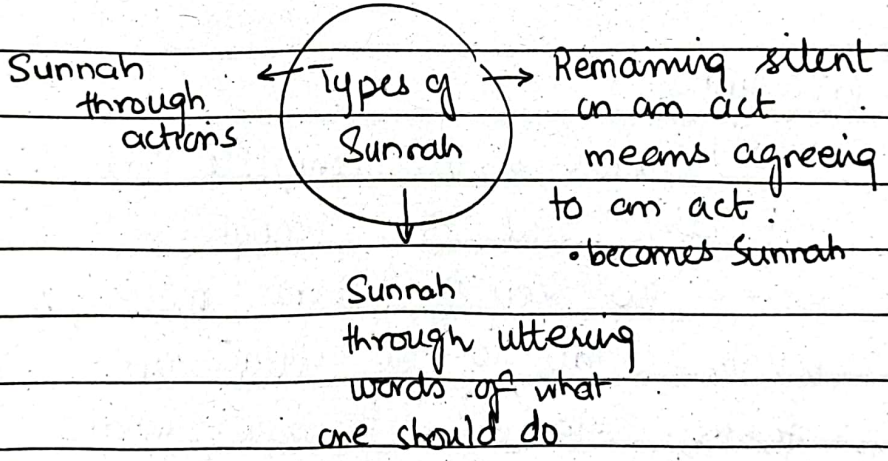 Types of
Sunnah
Sunnah
through
actions
Remaining silent
on an act
means agreeing
to an act.
• becomes Sunnah
Sunnah
through uttering
words of what
one should do